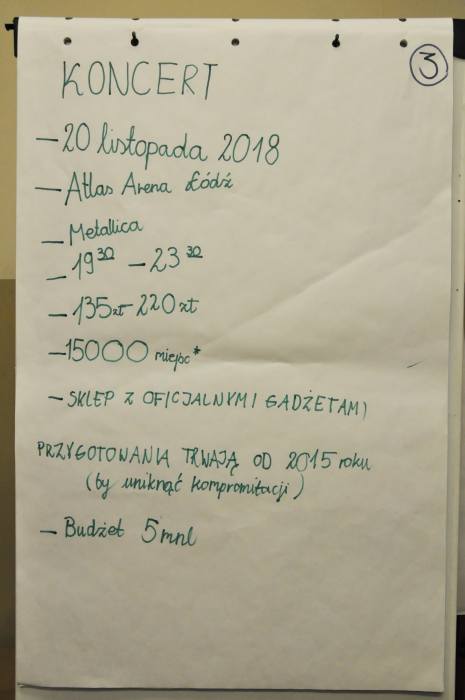 3
KONCERT
- 20 listopada 2018
- Atlas Arena Łódź
- Metallica
- 19 30 - 23 30
- 135zł - 220 zł
- 15000 miejsc*
- SKLEP Z OFICJALNYMI GADŻETAMI
PRZYGOTOWANIA TRWAJĄ OD 2015 roku
(by uniknąć kompromitacji)
- Budżet 5mnl